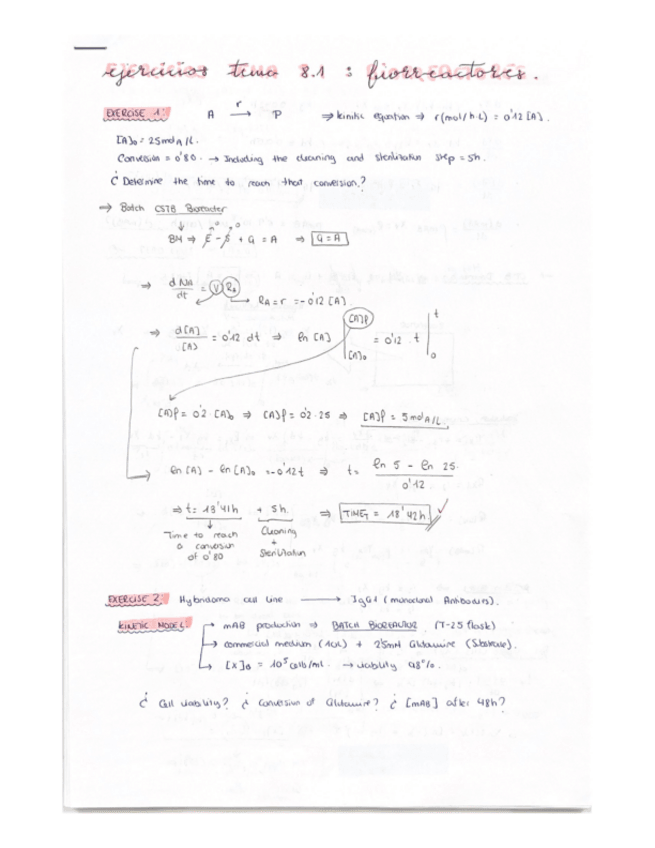 ejercicios tema 8.1 : biorreactores.
EXERCISE 1: A →r P ⇒ kinetic equation ⇒ r(mol/h·L) = 0'12 [A].
[A]₀ = 25mol A/L.
Conversion = 0'80. → Including the cleaning and sterilitation step = 5h.
¿ Determine the time to reach that conversion?
⇒ Batch CSTB Bioreactor
↓
BM ⇒ E - S + G = A ⇒ G = A
⇒ dNA/dt = V RA → RA = r = -0'12 [A].
⇒ d[A]/[A] = 0'12 dt ⇒ ln [A] |[A]f [A]₀ = 0'12 · t |t 0
[A]f = 0'2 · [A]₀ ⇒ [A]f = 0'2 · 25 ⇒ [A]f = 5 mol A/L
ln [A] - ln [A]₀ = -0'12 t ⇒ t = ln 5 - ln 25 / 0'12
⇒ t = 13'41h + 5h. ⇒ TIME T = 18'42h ✓
Time to reach a conversion of 0'80
Cleaning + Sterilitation
EXERCISE 2. Hybridoma cell line → IgG1 (monoclonal Antibodies).
KINETIC MODEL. → mAB production ⇒ BATCH BIOREACTOR (T-25 flask)
→ commercial medium + 25mM Glutamine (Substrate).
→ [X]₀ = 10⁵ cells/mL. → viability 98%.
¿ Cell viability? ¿ Conversion of Glutamine? ¿ [mAB] after 48h?